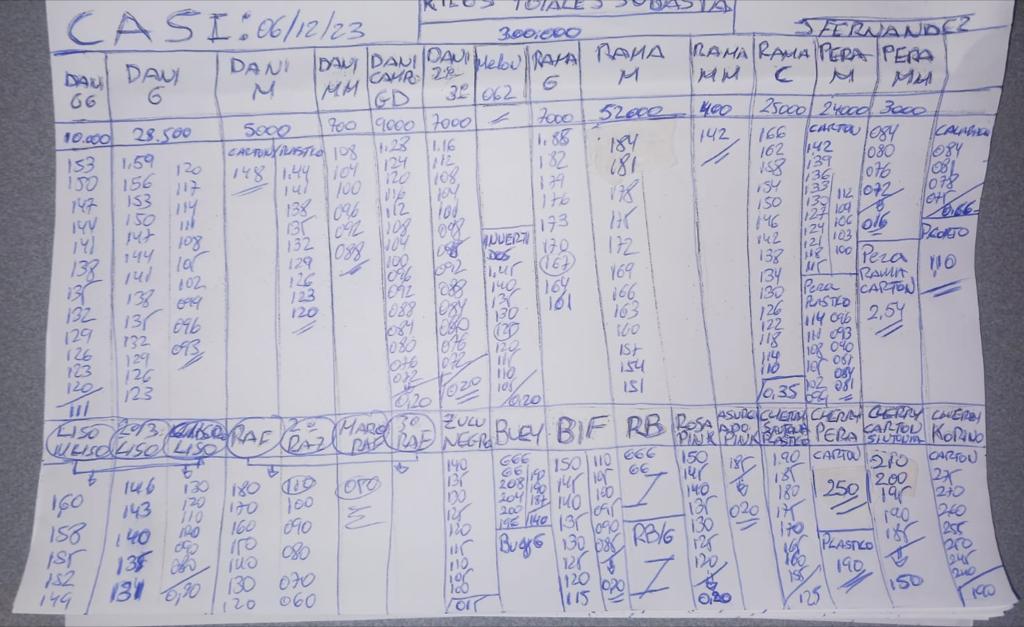 KILOS TOTALES SUBASTA
CASI: 06/12/23
300.000
S FERNANDEZ
DANI GG
DANI G
DANI M
DANI MM
DANI CAMPO GD
DANI 2ª 3ª
Melon 062
RAMA G
RAMA M
RAMA MM
RAMA C
PERA M
PERA MM
10.000 28.500 5000 700 9000 7000 7000 52000 400 25000 24000 3000
153 150 147 144 141 138 135 132 129 126 123 120 111
1.59 156 153 150 147 144 141 138 135 132 129 126 123
120 117 114 111 108 105 102 099 096 093
CARTON
148
PLASTICO
1.44 141 138 135 132 129 126 123 120
108 104 100 096 092 088
1.28 124 120 116 112 108 104 100 096 092 088 084 080 076 072 0,20
1.16 112 108 104 100 098 092 088 084 080 076 072 0,20
INVERTIDOS
1.45 140 135 130 120 110 0,20
1.88 182 179 176 173 170 167 164 161
184 181 178 175 172 169 166 163 160 157 154 151
142
166 162 158 154 150 146 142 138 134 130 126 122 118 114 110 0,35
CARTON
142 139 136 133 130 127 124 121 118 115
112 109 106 103 100
PERA PLASTICO
114 111 108 105 102
096 093 090 084 081
084 080 076 072 016
PERA RAMA CARTON
2,54
084 081 078 075 0,66
110
LISO
LISO
LISO
RAF
2ª RAF
MARC RAF
3ª RAF
ZULU NEGRO
BUEY
BIF
RB
ROSA PINK
ASURCADO PINK
CHERRY SINTONIA PLASTICO
CHERRY PERA
CHERRY CARTON SINTONIA
160 158 155 152 149
146 143 140 135 131
130 120 110 100 090 080 0,20
180 170 160 150 140 130 120
110 100 090 080 070 060
050
140 135 130 125 120 115 110 105 100 015
666 66 208 204 200 196
190 187 140
Buey G
150 145 140 135 130 125 120 115
110 105 100 095 090 085 020
666 66
RB/G
150 145 140 135 130 125 120 0,20
185 020
1.90 185 180 175 170 165 160 155 125
CARTON
250
PLASTICO
190
210 200 195 190 185 150
275 270 260 255 250 245 240 190